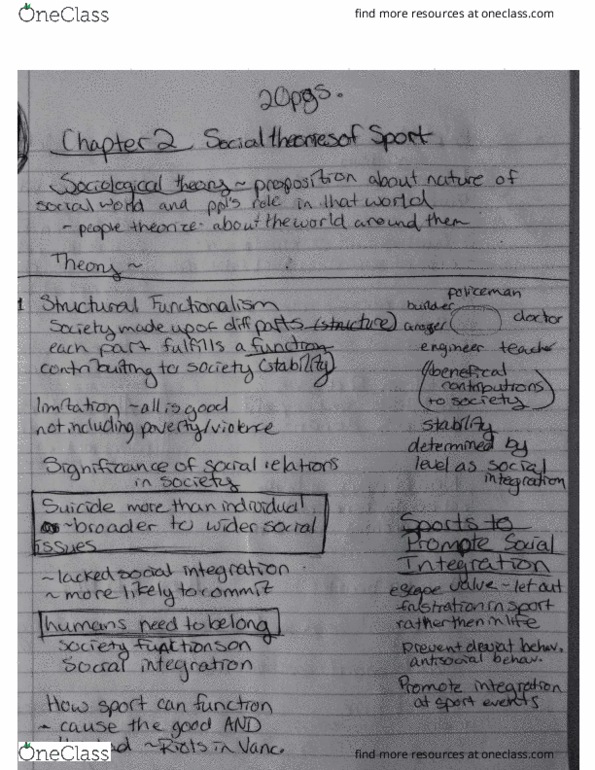 OneClass
find more resources at oneclass.com
20pgs.
Chapter 2 Social theories of Sport
Sociological theory ~ proposition about nature of
social world and ppl's role in that world
- people theorize about the world around them
Theory ~
1 Structural Functionalism
Society made up of diff parts (structure)
each part fulfills a function
contributing to society (stability)
limitation ~ all is good
not including poverty/violence
Significance of social relations
in society
Suicide more than individual
~ broader to wider social
issues
~ lacked social integration
~ more likely to commit
humans need to belong
society funktions on
Social integration
How sport can function
- cause the good AND
~ Riots in Vanc.
policeman
builder
doctor
engineer teacher
benefical
contributions
to society
stability
determined by
level as social
integration
Sports to
Promote Social
Integration
escape valve ~ let out
frustration in sport
rather then in life
prevent deviat behav.
antisocial behav.
Promote integration
at sport events
OneClass
find more resources at oneclass.com